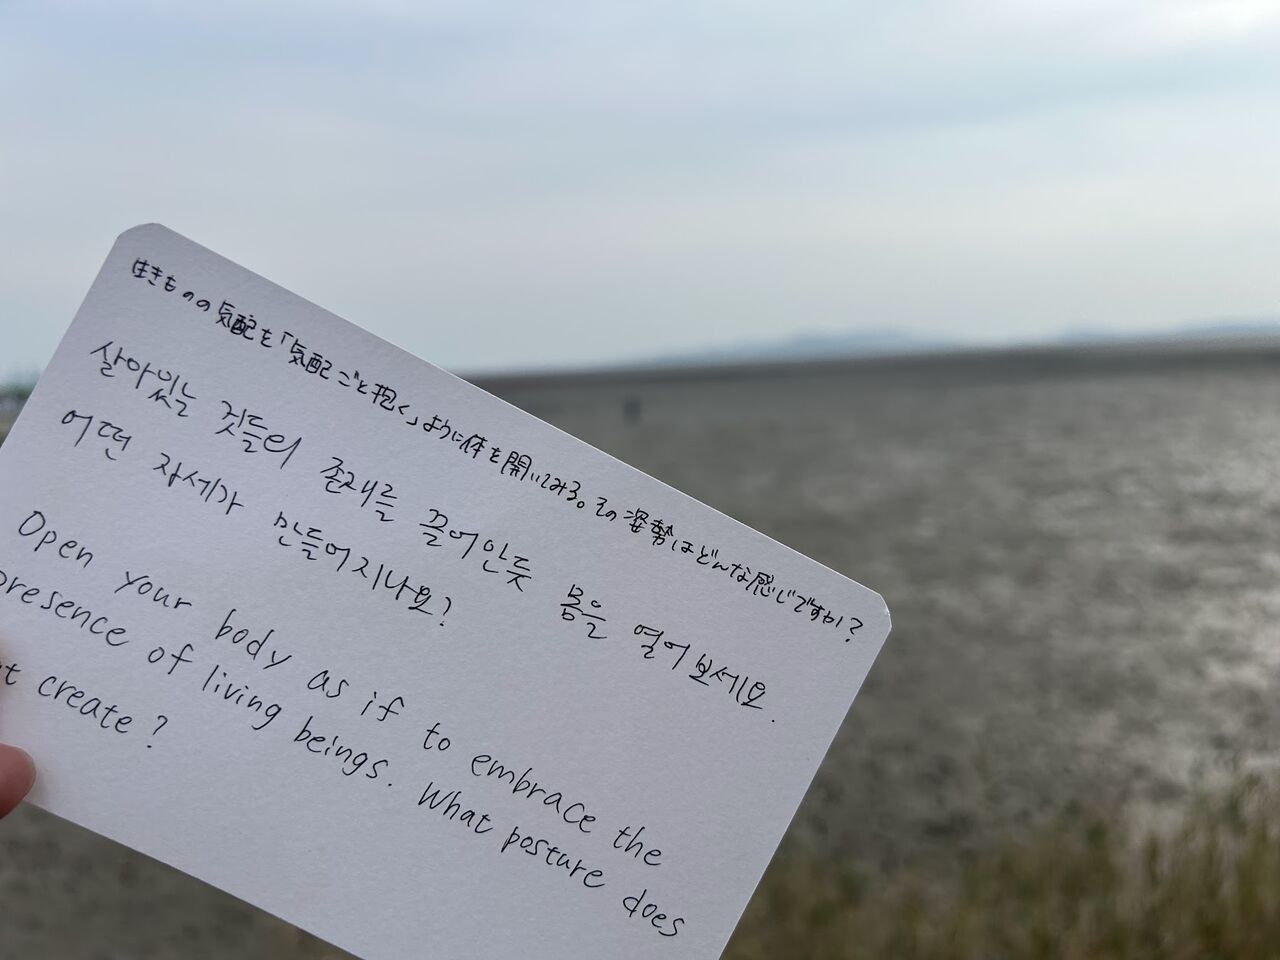 生きものの気配を「気配ごと抱く」ように体を開いてみる。その姿勢はどんな感じですか?
살아있는 것들의 존재를 끌어안듯 몸을 열어보세요.
어떤 자세가 만들어지나요?
Open your body as if to embrace the
presence of living beings. What posture does
create?